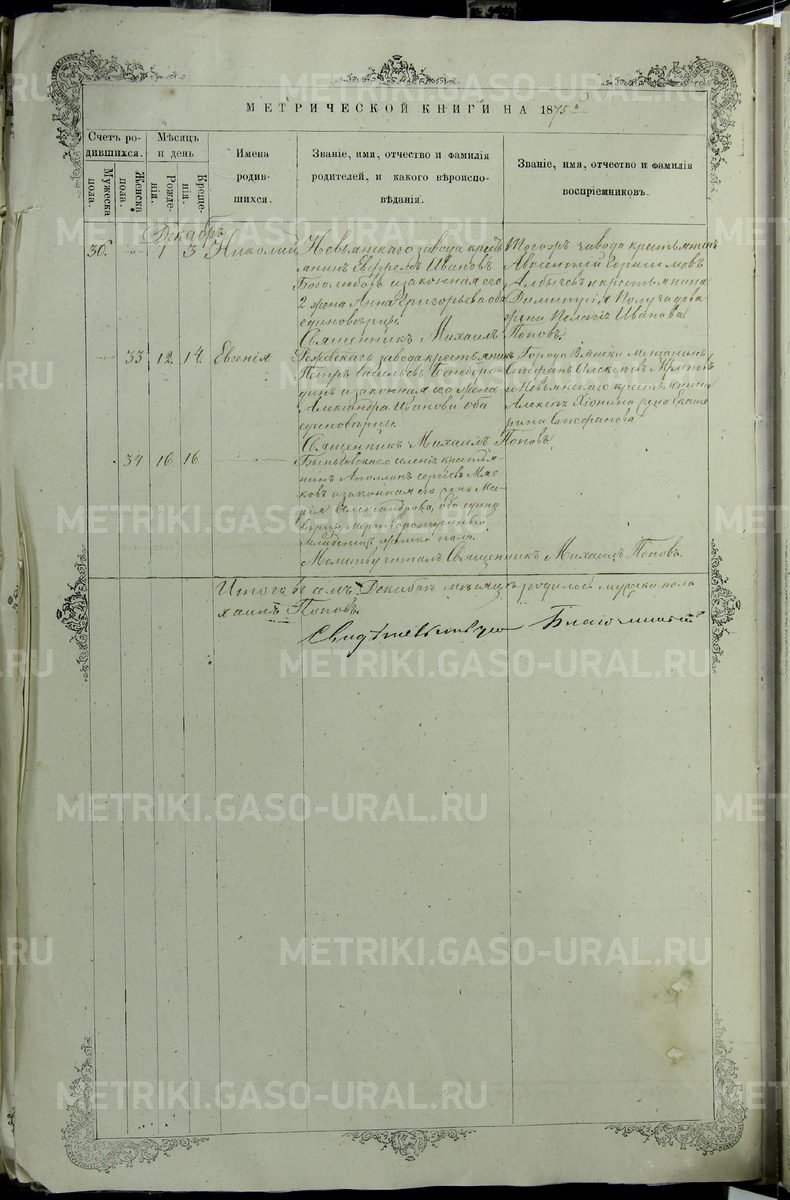 МЕТРИЧЕСКОЙ КНИГИ НА 1875
Счетъ родившихся.
Мужеска пола.
Женска пола.
Мѣсяцъ и день
Рожденія.
Крещенія.
Имена родившихся.
Званіе, имя, отчество и фамилія родителей, и какого вѣроисповѣданія.
Званіе, имя, отчество и фамилія воспріемниковъ.
Декабрь
36. 1 3 Николай
Невьянскаго завода кресть
янинъ Иванов
Боголюбовъ и законная его
2 жена Анна Григорьева оба
единовѣрцы.
Священникъ Михаилъ Поповъ.
Тогожъ завода крестьянинъ
Авксентий
и крестьянина
Димитрия
жена Пелагія Иванова
33 12 14 Евгенія
Режевскаго завода крестьянин
Петръ Васильевъ
и законная его жена
Александра Иванова оба
единовѣрцы.
Священникъ Михаилъ Поповъ
Города мѣщанинъ
Стефанъ Алексѣевъ
и Невьянскаго крестьянина
Алексѣя жена Екате
рина Стефанова
34 16 16
Быньговскаго селенія крестья
нинъ Аполлонъ Сергіевъ Мяг
ковъ и законная его жена Ма
рія Александрова, оба едино
вѣрцы, мертворожденный
младенецъ женска пола.
Молитву читалъ Священникъ Михаилъ Поповъ.
Итого въ Декабрѣ мѣсяцѣ родилось мужска пола
хаилъ Поповъ
Свидѣтельствую Благочинный
METRIKI.GASO-URAL.RU